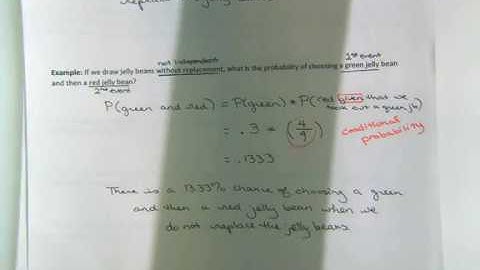 replace the jelly beans
not independent
1st event
Example: If we draw jelly beans without replacement, what is the probability of choosing a green jelly bean
and then a red jelly bean?
2nd event
P(green and red) = P(green) * P(red given that we
took out a green jb)
= .3 * (4/9)
conditional
probability
= .1333
There is a 13.33% chance of choosing a green
and then a red jelly bean when we
do not replace the jelly beans